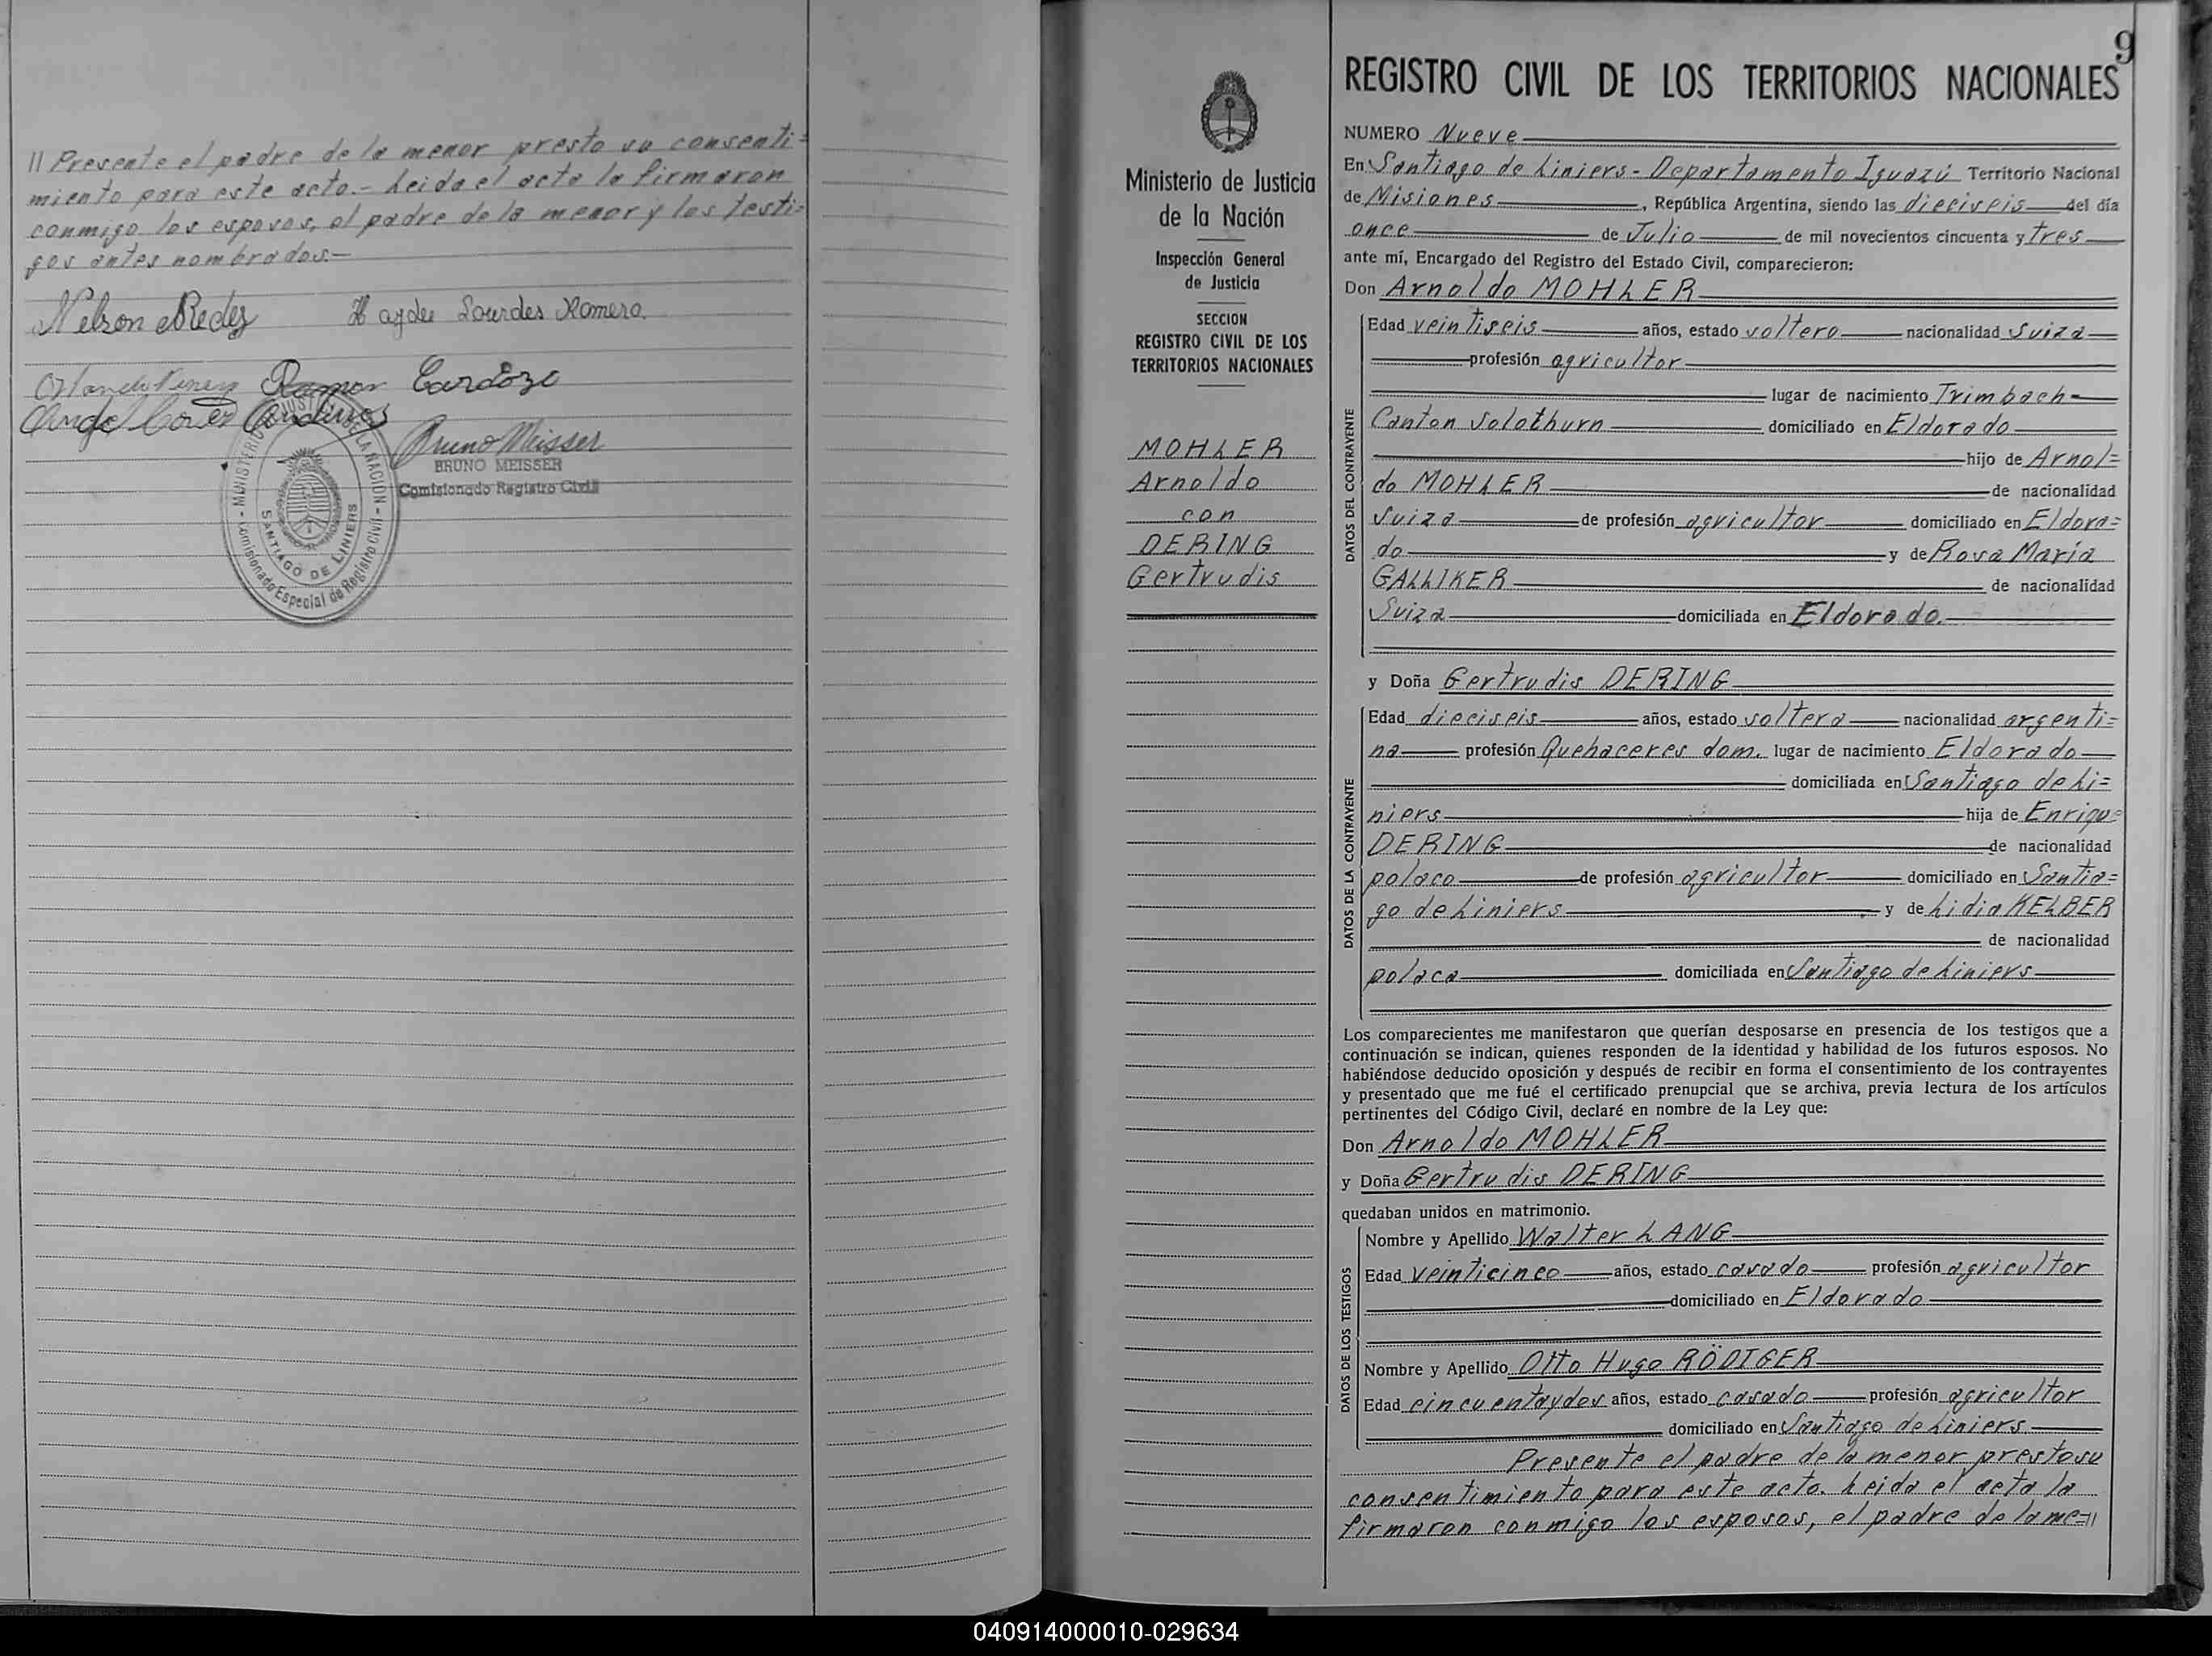 // Presente el padre de la menor presto su consenti=
miento para este acto.- Leida el acta la firmaron
conmigo los esposos, el padre de la menor y los testi=
gos antes nombrados.-
Nelson Haydee Lourdes Romero.
Ramon Cardozo
Bruno Meisser
BRUNO MEISSER
Comisionado Registro Civil
MINISTERIO DE JUSTICIA DE LA NACION
SANTIAGO DE LINIERS
Comisionado Especial de Registro Civil
9
Ministerio de Justicia
de la Nación
Inspección General
de Justicia
SECCION
REGISTRO CIVIL DE LOS
TERRITORIOS NACIONALES
MOHLER
Arnoldo
con
DERING
Gertrudis
REGISTRO CIVIL DE LOS TERRITORIOS NACIONALES
NUMERO Nueve
En Santiago de Liniers - Departamento Iguazú Territorio Nacional
de Misiones, República Argentina, siendo las dieciseis del día
once de Julio de mil novecientos cincuenta y tres
ante mí, Encargado del Registro del Estado Civil, comparecieron:
Don Arnoldo MOHLER
DATOS DEL CONTRAYENTE
Edad veintiseis años, estado soltero nacionalidad Suiza
profesión agricultor
lugar de nacimiento Trimbach-
Canton Solothurn domiciliado en Eldorado
hijo de Arnol=
do MOHLER de nacionalidad
Suiza de profesión agricultor domiciliado en Eldora=
do y de Rosa María
GALLIKER de nacionalidad
Suiza domiciliada en Eldorado.
y Doña Gertrudis DERING
DATOS DE LA CONTRAYENTE
Edad dieciseis años, estado soltera nacionalidad argenti=
na profesión Quehaceres dom. lugar de nacimiento Eldorado
domiciliada en Santiago de Li=
niers hija de Enrique
DERING de nacionalidad
polaco de profesión agricultor domiciliado en Santia=
go de Liniers y de Lidia KELBER
de nacionalidad
polaca domiciliada en Santiago de Liniers
Los comparecientes me manifestaron que querían desposarse en presencia de los testigos que a
continuación se indican, quienes responden de la identidad y habilidad de los futuros esposos. No
habiéndose deducido oposición y después de recibir en forma el consentimiento de los contrayentes
y presentado que me fué el certificado prenupcial que se archiva, previa lectura de los artículos
pertinentes del Código Civil, declaré en nombre de la Ley que:
Don Arnoldo MOHLER
y Doña Gertrudis DERING
quedaban unidos en matrimonio.
DATOS DE LOS TESTIGOS
Nombre y Apellido Walter LANG
Edad veinticinco años, estado casado profesión agricultor
domiciliado en Eldorado
Nombre y Apellido Otto Hugo RÖDIGER
Edad cincuentaydos años, estado casado profesión agricultor
domiciliado en Santiago de Liniers
Presente el padre de la menor presto su
consentimiento para este acto. Leida el acta la
firmaron conmigo los esposos, el padre de la me=//
040914000010-029634